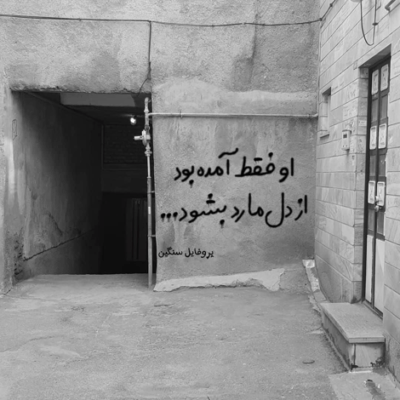 او فقط آمده بود
از دل ما رد بشود...
پروفایل سنگین